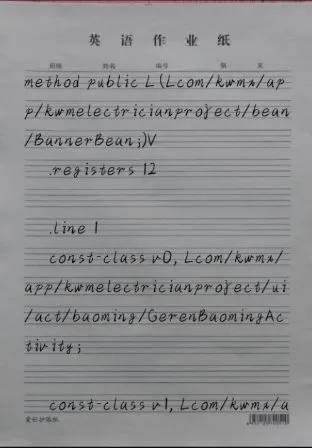 英语作业纸
班级 姓名 编号 第 页
method public L(Lcom/kwmx/ap
p/kwmelectricianproject/bean
/BannerBean;)V
.registers 12
.line 1
const-class v0, Lcom/kwmx/
app/kwmelectricianproject/ui
/act/baoming/GerenBaomingAc
tivity;
const-class v1, Lcom/kwmx/a